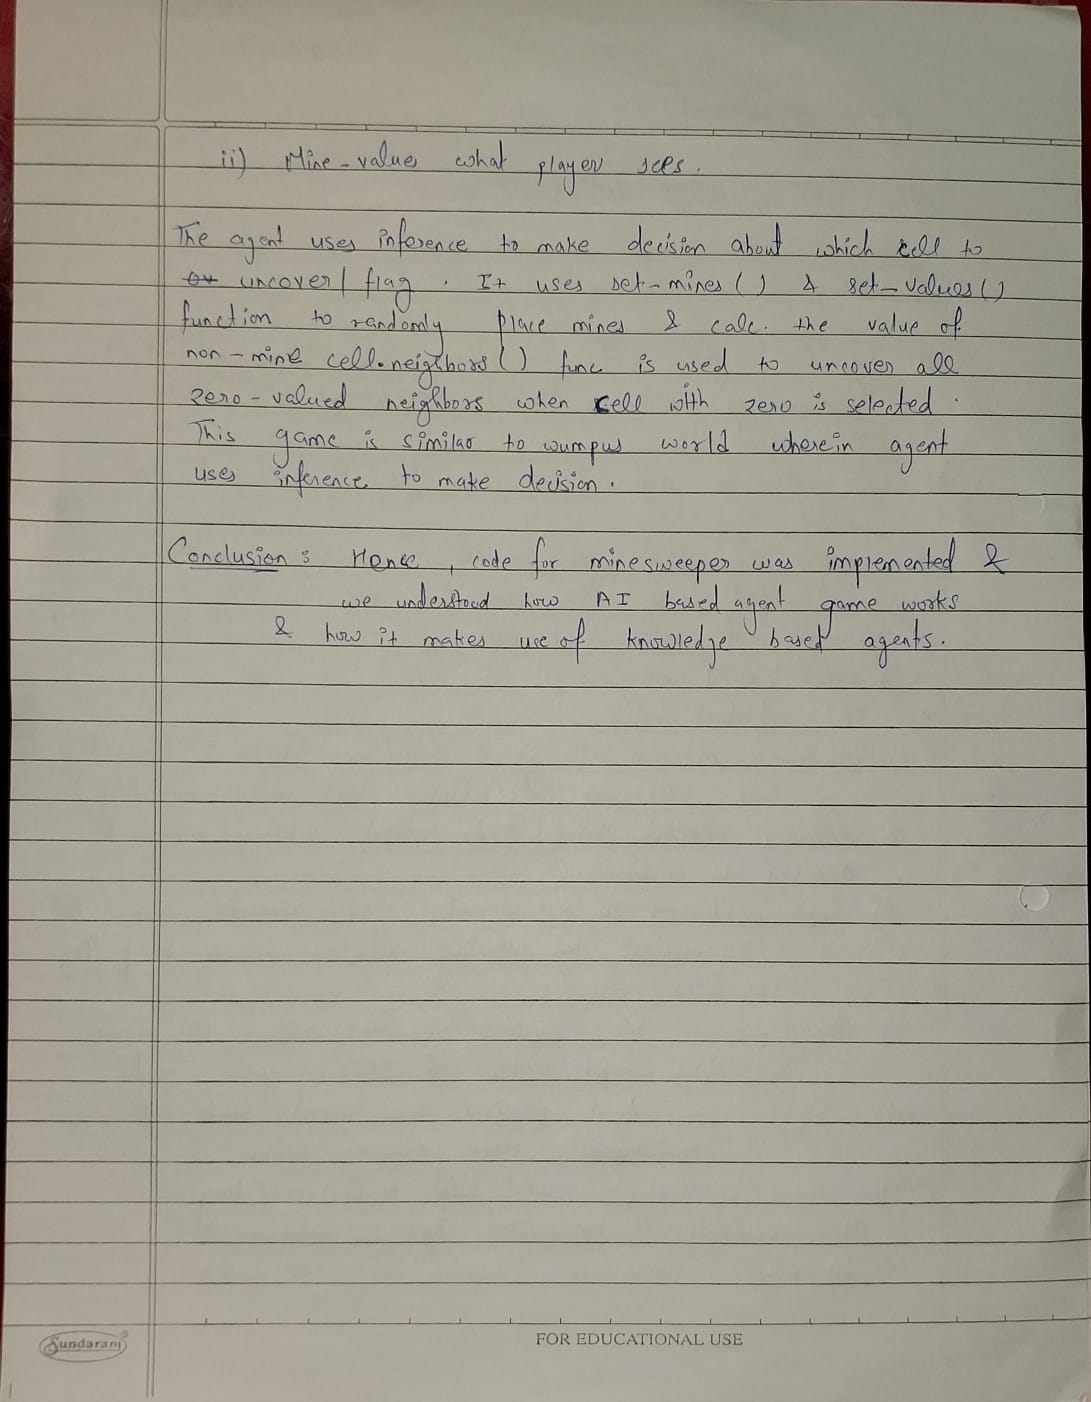 ii) Mine-values what player sees.
The agent uses inference to make decision about which cell to
uncover/flag. It uses set-mines() & set-values()
function to randomly place mines & calc. the value of
non-mine cell. neighbors() func is used to uncover all
zero-valued neighbors when cell with zero is selected.
This game is similar to wumpus world wherein agent
uses inference to make decision.
Conclusion: Hence, code for minesweeper was implemented &
we understood how AI based agent game works
& how it makes use of knowledge based agents.
Sundaram
FOR EDUCATIONAL USE